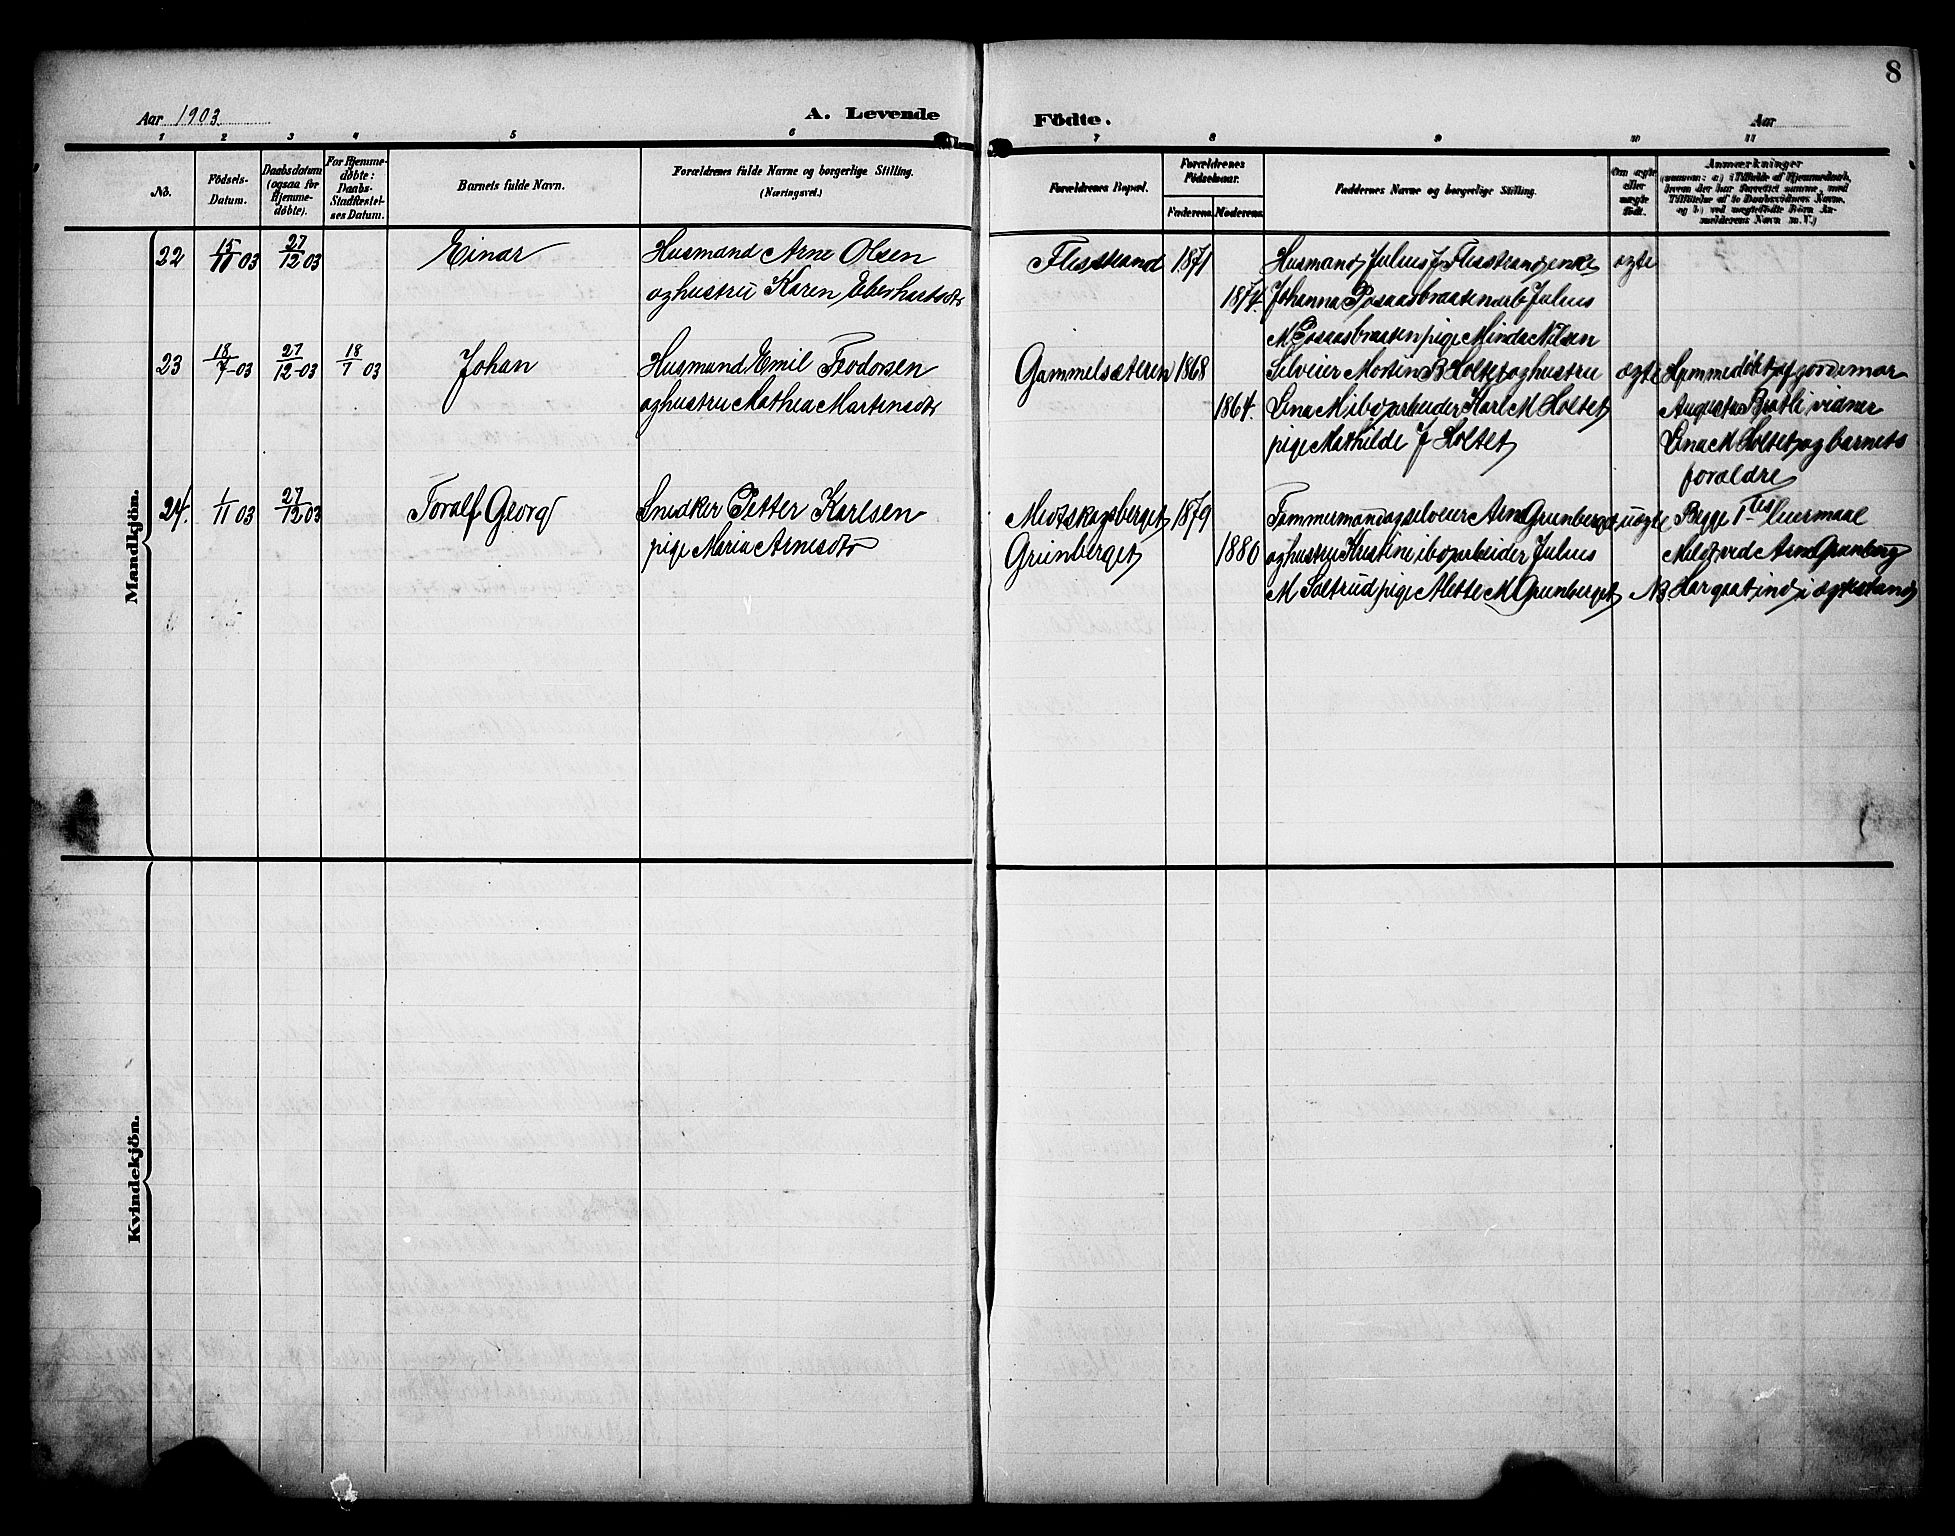 8
Aar 1903.
A. Levende
Födte.
Aar
1 2 3 4 5 6 7 8 9 10 11
No.
Födsels-
Datum.
Daabsdatum
(ogsaa for
Hjemme-
døbte).
For Hjemme-
døbte:
Daabs-
Stadfæstel-
ses Datum.
Barnets fulde Navn.
Forældrenes fulde Navne og borgerlige Stilling.
(Næringsvei.)
Forældrenes Bopæl.
Forældrenes
Födselsaar.
Faderens. Moderens.
Faddernes Navne og borgerlige Stilling.
Om ægte
eller
uægte
født.
Anmærkninger
Mandkjön.
22 15/11 03 27/12 03 Einar Husmand Arne Olsen Flisstrand 1871 Husmand Julius J Flisstrand enke ægte
og hustru Karen Eberhartsdtr 1874. Johanna Posaasbraaten arb Julius
M Posaasbraaten pige Minda Nilsen
23 18/7 03 27/12 03 18/7 03 Johan Husmand Emil Teodorsen Gammelsæteren 1868 Selveier Mortin B Holtet og hustru ægte Hjemmedøbt af gjordemor
og hustru Mathea Martinsdtr 1864. Lina M ibo arbeider Karl M Holtet Augusta Bratli vidner
pige Mathilde J Holtet Lina M Holtet og barnets
forældre
24. 1/11 03 27/12 03 Toralf Georg Snedker Petter Karlsen Midtskogsberget 1879 Tømmermand og selveier Arne Grunberget uægte Begge 1tes leiermaal
pige Maria Arnesdtr Grünberget 1880 og hustru Kristine ibo arbeider Julius Meldt ved Arne Grunberg
M Soltrud pige Alette M Grunberget NB. Har gaat ind i ægtestand
Kvindekjön.